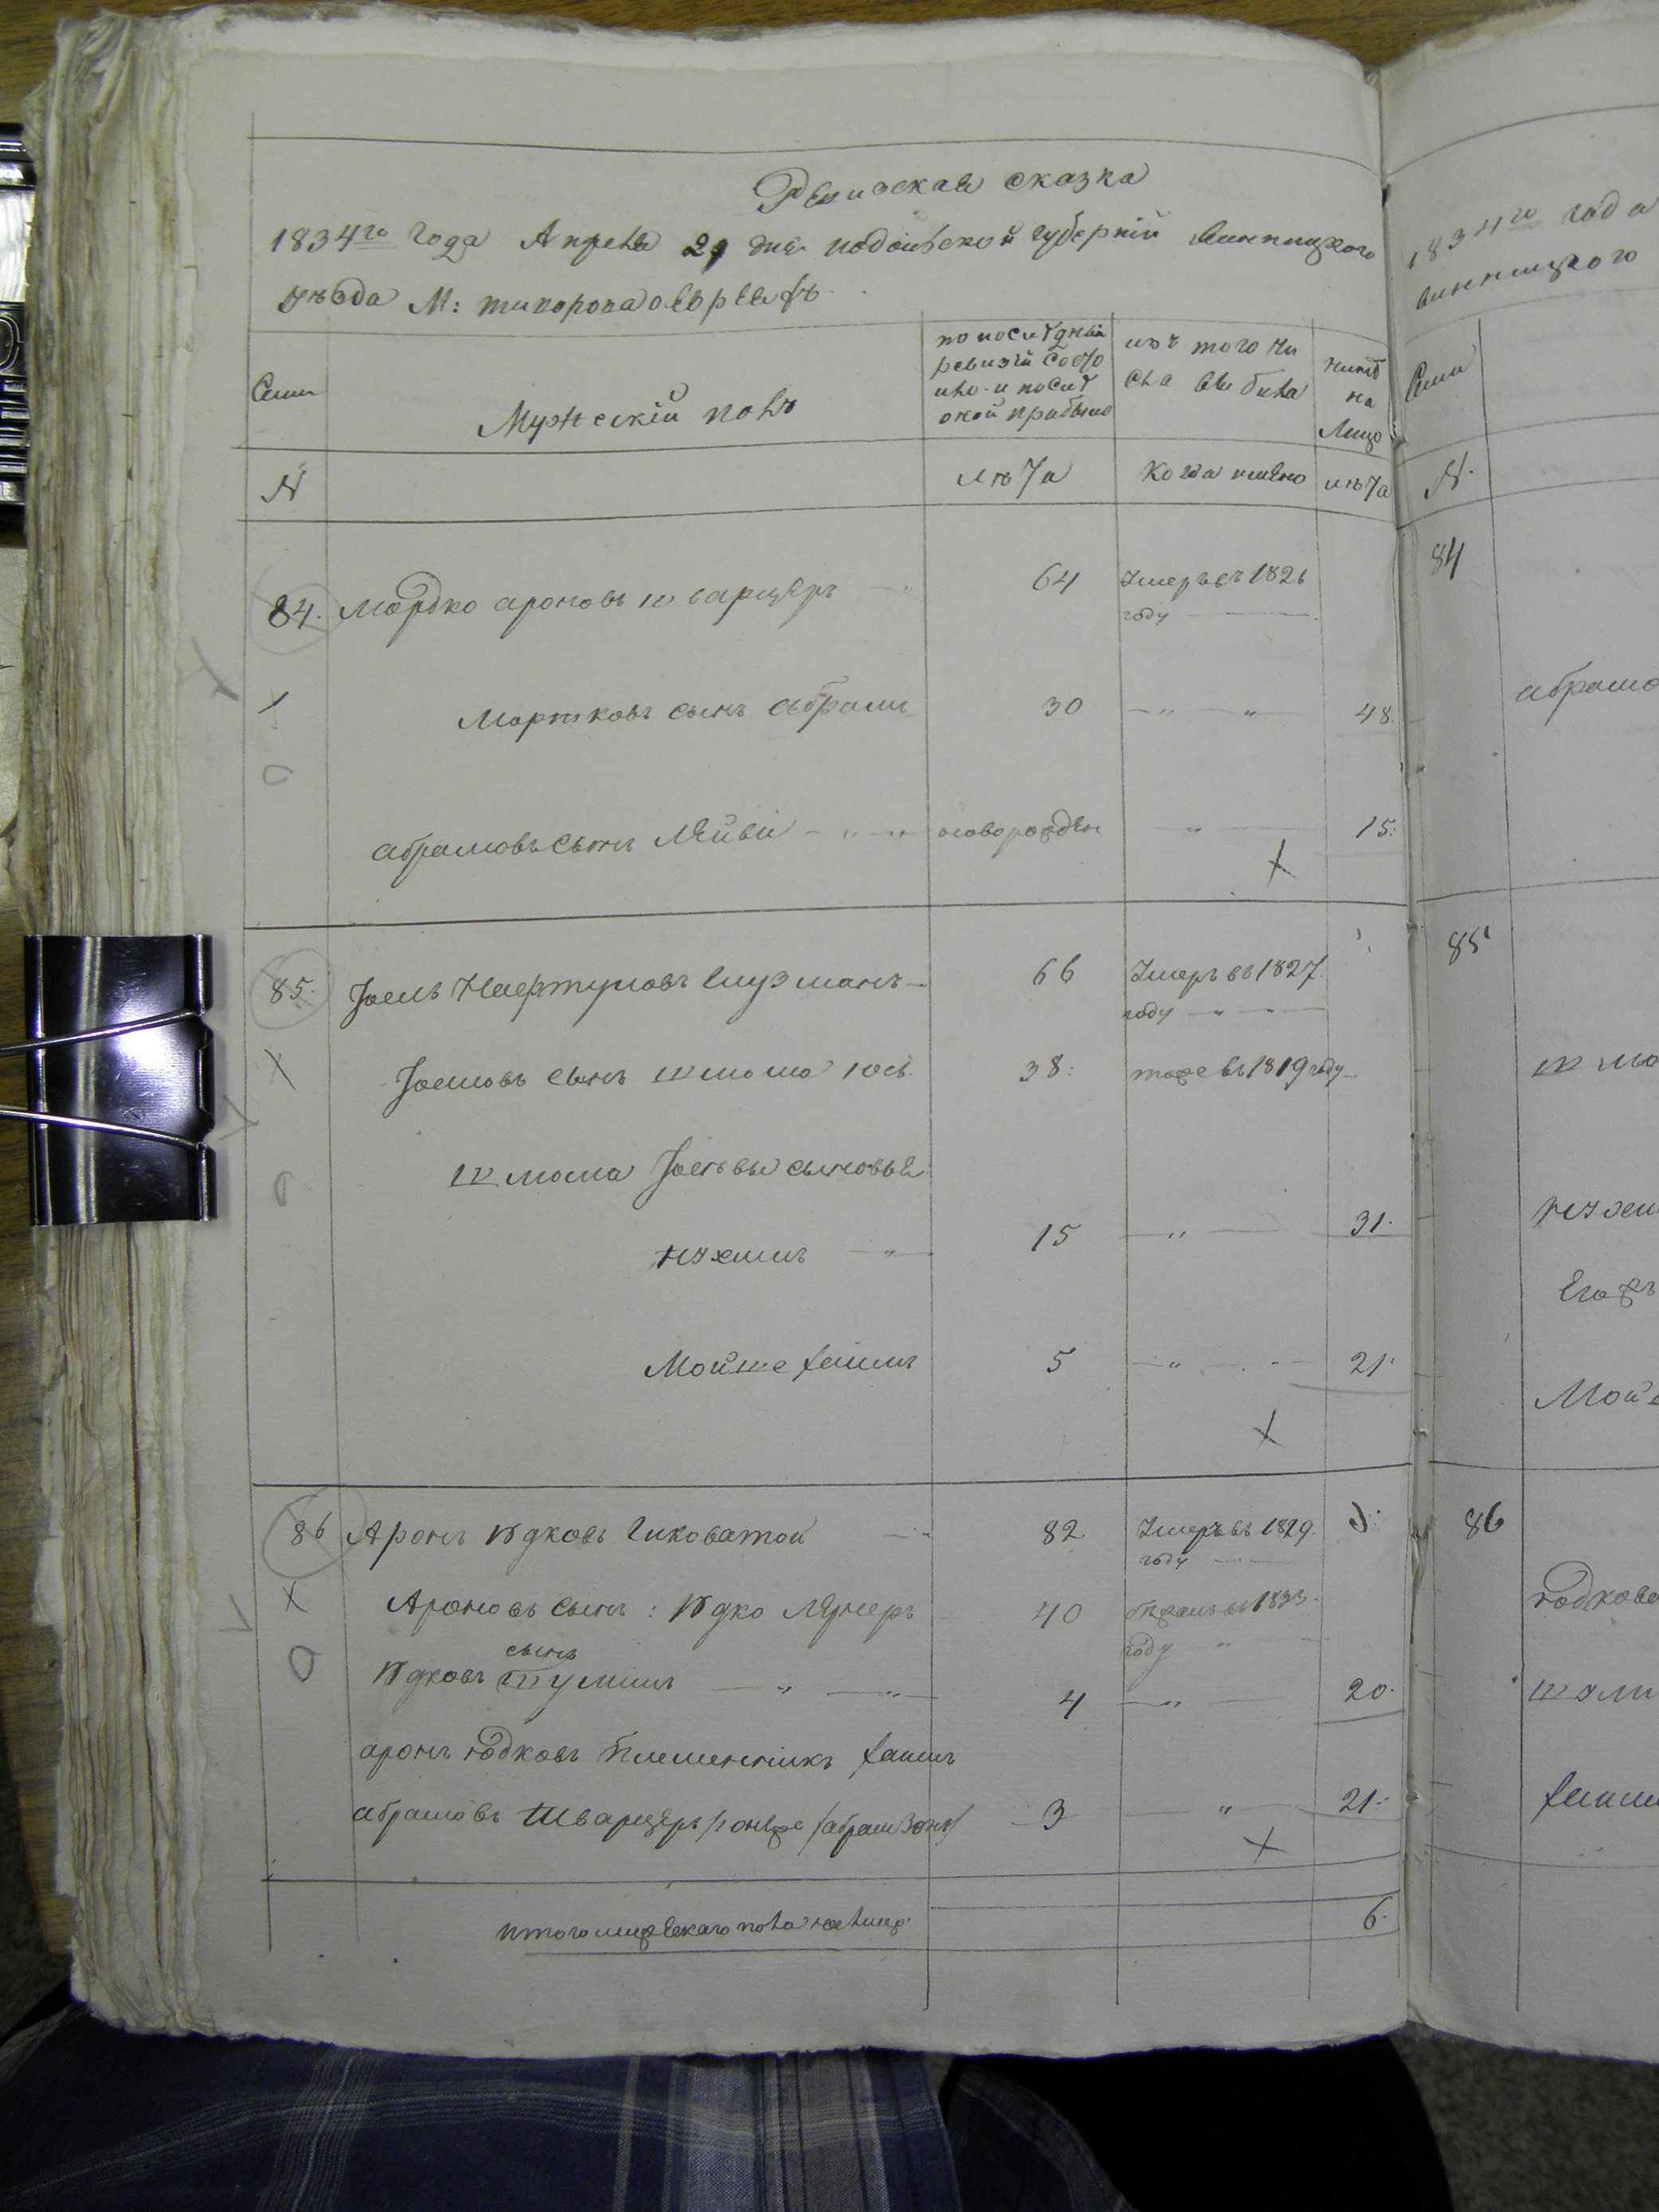 Ревизская сказка
1834го года Апреля 29 дня подольской губерний винницкого
уезда М: тикоропа о евреяхъ
Семи
Мужескій полъ
по последней
ревизіи состо
яло и после
оной прибыло
изъ того чи
сла выбыло
ныне
на
Лицо
N
лета
Когда имено
лета
84. Мордко ароновъ шварцеръ 64 Умеръ въ 1826
году
Мортковъ сынъ абрамъ 30 48.
абрамовъ сынъ Лейви новорожден 15:
85. Іоель Умеръ въ 1827
66
году
Іоелювъ сынъ шлома 38: тоже въ 1819 году
шлома сыновья
15 31.
Мойше хаимъ 5 21.
86 Аронъ Юдковъ Гиковатой 82 Умеръ въ 1829.
году
Ароновъ сынъ: Юдко Лейзеръ 40 въ 1833.
году
сынъ
Юдковъ 4 20.
аронъ юдковъ племенникъ хаимъ
абрамовъ Шварцеръ 3 21.
итого мужескаго пола налицо 6.
1834го года
винницкого
Семи
N.
84
абрамо
85
шло
Мойш
86
юдкова
хаим